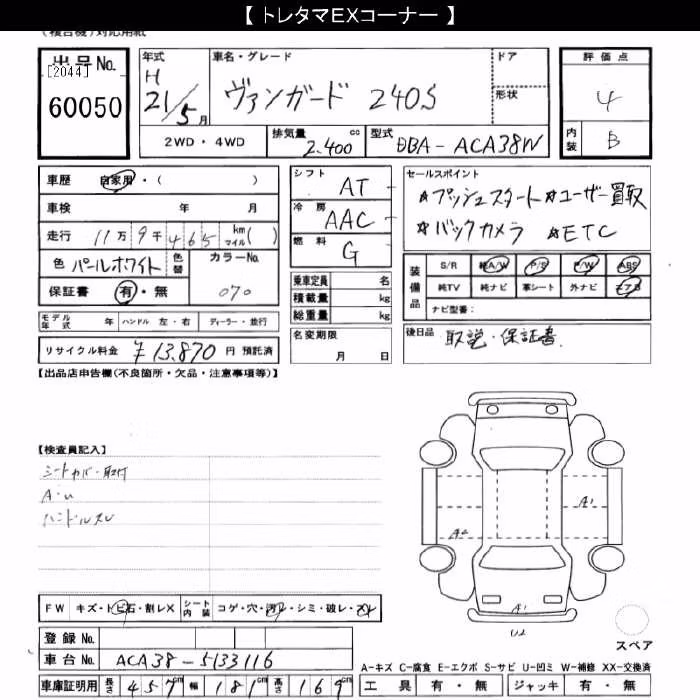 【 トレタマEXコーナー 】
(複合機)対応用紙
出品No.
[2044]
60050
年式
H
21/5月
車名・グレード
ヴァンガード 240S
ドア
形状
評価点
4
内装
B
2WD・4WD
排気量 cc
2.400
型式
DBA-ACA38W
車歴 自家用・( )
車検 年 月
走行 11万9千465 km マイル( )
色 パールホワイト
色替
カラーNo.
070
保証書 有・無
モデル年式 年 ハンドル 左・右 ディーラー・並行
リサイクル料金 ¥13,870 円 預託済
シフト AT
冷房 AAC
燃料 G
乗車定員 名
積載量 kg
総重量 kg
名変期限
月 日
セールスポイント
★プッシュスタート★ユーザー買取
★バックカメラ ★ETC
装備品
S/R 純A/W P/S P/W ABS
純TV 純ナビ 革シート 外ナビ エアB
ナビ型番:
後日品 取説・保証書
【出品店申告欄(不良箇所・欠品・注意事項等)】
【検査員記入】
シートカバー取付
A・U
ハンドルスレ
A2
A1
A1
U2
FW キズ・トビ石・割レX
シート内装 コゲ・穴・汚レ・シミ・破レ・スレ
登録No.
車台No. ACA38-5133116
車庫証明用 長さ 457cm 幅 181cm 高さ 169cm
スペア
A-キズ C-腐食 E-エクボ S-サビ U-凹ミ W-補修 XX-交換済
工具 有・無 ジャッキ 有・無